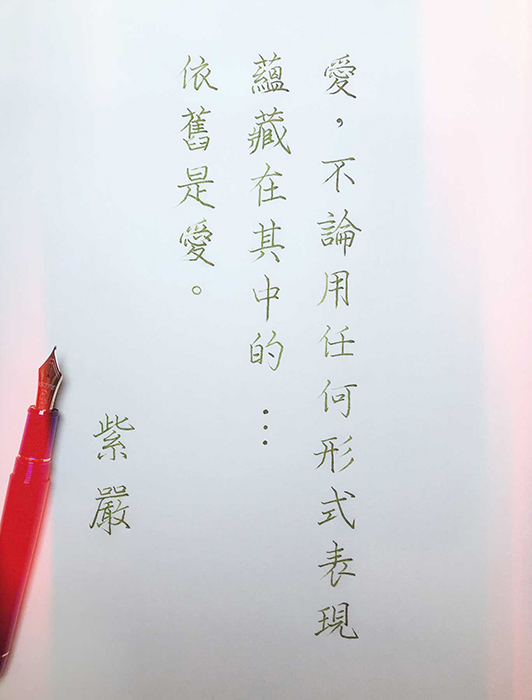 愛，不論用任何形式表現
蘊藏在其中的…
依舊是愛。
紫嚴